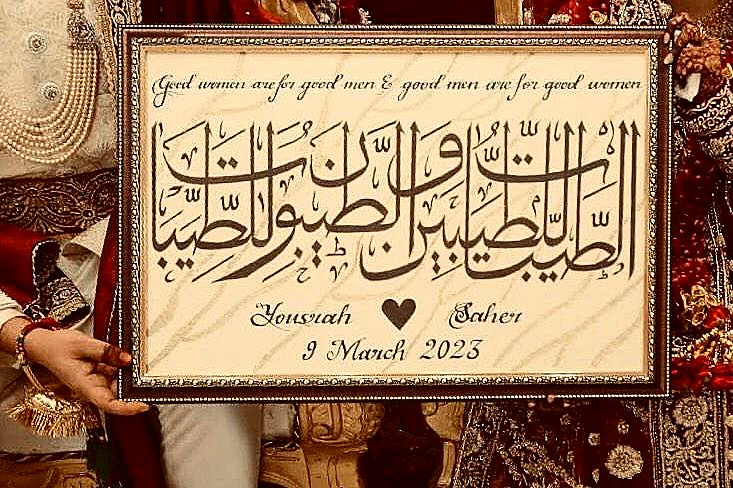 Good women are for good men & good men are for good women
الطَّيِّبَاتُ لِلطَّيِّبِينَ وَالطَّيِّبُونَ لِلطَّيِّبَاتِ
Yousrah ♥ Saher
9 March 2023